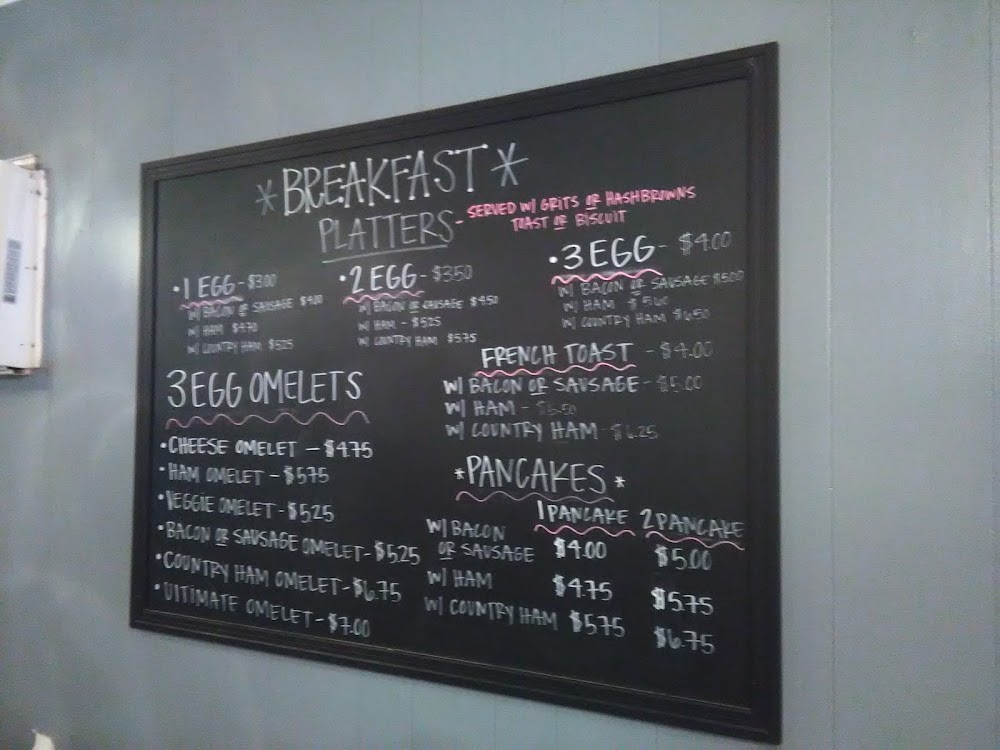 *BREAKFAST*
PLATTERS - SERVED W/ GRITS OR HASHBROWNS
TOAST OR BISCUIT
• 1 EGG - $3.00
W/ BACON OR SAUSAGE $4.00
W/ HAM $4.70
W/ COUNTRY HAM $5.25
• 2 EGG - $3.50
W/ BACON OR SAUSAGE $4.50
W/ HAM - $5.25
W/ COUNTRY HAM $5.75
• 3 EGG - $4.00
W/ BACON OR SAUSAGE $5.00
W/ HAM
W/ COUNTRY HAM $6.50
FRENCH TOAST - $4.00
W/ BACON OR SAUSAGE - $5.00
W/ HAM -
W/ COUNTRY HAM - $6.25
3 EGG OMELETS
• CHEESE OMELET - $4.75
• HAM OMELET - $5.75
• VEGGIE OMELET - $5.25
• BACON OR SAUSAGE OMELET - $5.25
• COUNTRY HAM OMELET - $6.75
• ULTIMATE OMELET - $7.00
*PANCAKES*
1 PANCAKE 2 PANCAKE
W/ BACON
OR SAUSAGE $4.00 $5.00
W/ HAM $4.75 $5.75
W/ COUNTRY HAM $5.75 $6.75